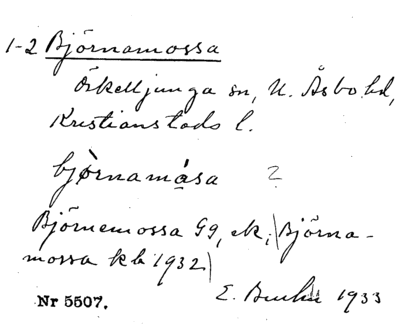 1-2 Björnamossa
Örkelljunga sn, N. Åsbo hd,
Kristianstads l.
bjò̷rnamása 2
Björnemossa G9, ek; \Björna-
mossa kb 1932\
Nr 5507. E. 1933